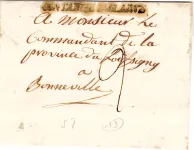 A Monsieur Le
Commandant de la
province du faussigny
à
Bonneville